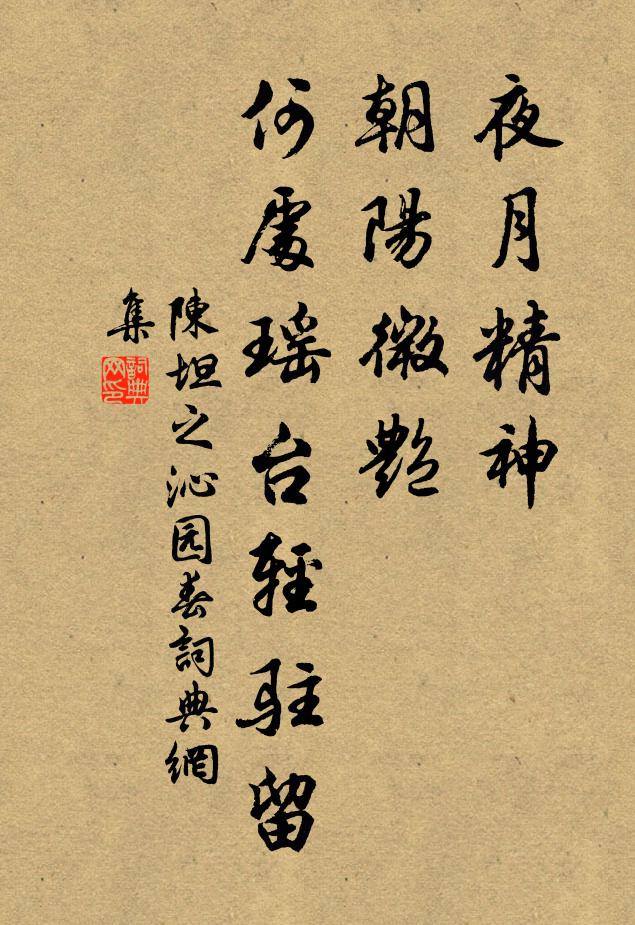 夜月精神
朝陽微艷
何處瑶台輕駐留
陳坦之沁园春詞典網
集
詞典
网印